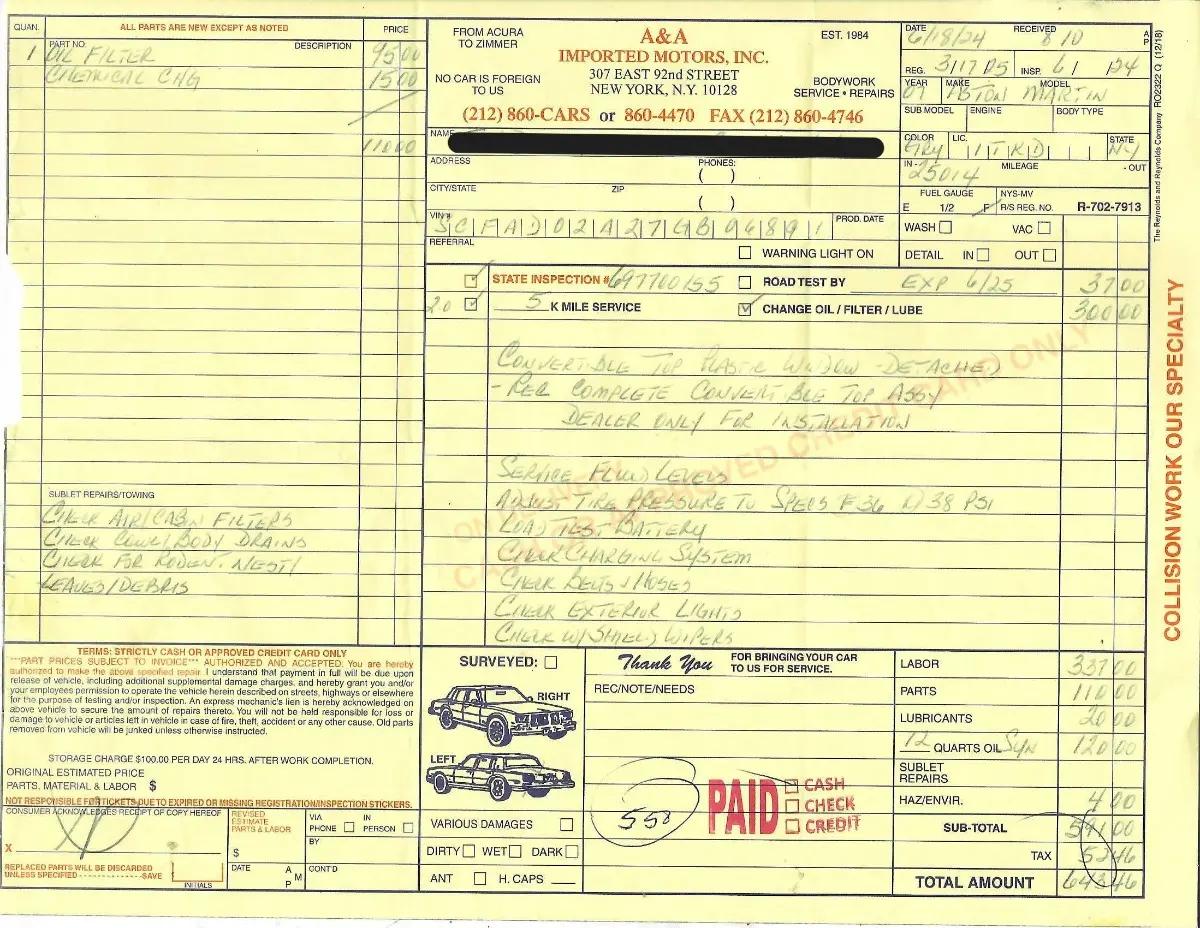 QUAN. ALL PARTS ARE NEW EXCEPT AS NOTED PRICE
PART NO. DESCRIPTION
1 OIL FILTER 95 00
CHEMICAL CHG 15 00
110 00
SUBLET REPAIRS/TOWING
CHECK AIR/CABIN FILTERS
CHECK COWL/BODY DRAINS
CHECK FOR RODENT NEST/
LEAVES/DEBRIS
FROM ACURA TO ZIMMER
NO CAR IS FOREIGN TO US
A&A
IMPORTED MOTORS, INC.
307 EAST 92nd STREET
NEW YORK, N.Y. 10128
EST. 1984
BODYWORK
SERVICE • REPAIRS
(212) 860-CARS or 860-4470 FAX (212) 860-4746
NAME
ADDRESS PHONES:
( )
CITY/STATE ZIP
( )
VIN# SCFAD02A27GB06891 PROD. DATE
REFERRAL
WARNING LIGHT ON
DATE 6/18/24 RECEIVED 8 10 A P
REG. 3/17 DS INSP. 6/ /24
YEAR 07 MAKE ASTON MARTIN MODEL
SUB MODEL ENGINE BODY TYPE
COLOR GRY LIC. 1TKD STATE NY
IN - 25014 MILEAGE - OUT
FUEL GAUGE NYS-MV
E 1/2 F R/S REG. NO. R-702-7913
WASH VAC
DETAIL IN OUT
STATE INSPECTION # 697700155 ROAD TEST BY EXP 6/25 37 00
20 5 K MILE SERVICE CHANGE OIL / FILTER / LUBE 300 00
CONVERTIBLE TOP PLASTIC WINDOW - DETACHED
- REQ COMPLETE CONVERTIBLE TOP ASSY
DEALER ONLY FOR INSTALLATION
SERVICE FLUID LEVELS
ADJUST TIRE PRESSURE TO SPECS F 36 R/38 PSI
LOAD TEST BATTERY
CHECK CHARGING SYSTEM
CHECK BELTS & HOSES
CHECK EXTERIOR LIGHTS
CHECK W/SHIELD WIPERS
TERMS: STRICTLY CASH OR APPROVED CREDIT CARD ONLY
***PART PRICES SUBJECT TO INVOICE*** AUTHORIZED AND ACCEPTED: You are hereby
authorized to make the above specified repair. I understand that payment in full will be due upon
release of vehicle, including additional supplemental damage charges, and hereby grant you and/or
your employees permission to operate the vehicle herein described on streets, highways or elsewhere
for the purpose of testing and/or inspection. An express mechanic's lien is hereby acknowledged on
above vehicle to secure the amount of repairs thereto. You will not be held responsible for loss or
damage to vehicle or articles left in vehicle in case of fire, theft, accident or any other cause. Old parts
removed from vehicle will be junked unless otherwise instructed.
STORAGE CHARGE $100.00 PER DAY 24 HRS. AFTER WORK COMPLETION.
ORIGINAL ESTIMATED PRICE
PARTS, MATERIAL & LABOR $
NOT RESPONSIBLE FOR TICKETS DUE TO EXPIRED OR MISSING REGISTRATION/INSPECTION STICKERS.
CONSUMER ACKNOWLEDGES RECEIPT OF COPY HEREOF
X
REPLACED PARTS WILL BE DISCARDED
UNLESS SPECIFIED - - - - - - - - - - - - - -SAVE
INITIALS
REVISED ESTIMATE PARTS & LABOR
$
VIA PHONE IN PERSON
BY
DATE A M P CONT'D
SURVEYED:
RIGHT
LEFT
VARIOUS DAMAGES
DIRTY WET DARK
ANT H. CAPS
Thank You FOR BRINGING YOUR CAR TO US FOR SERVICE.
REC/NOTE/NEEDS
558
PAID
CASH
CHECK
CREDIT
LABOR 337 00
PARTS 110 00
LUBRICANTS 20 00
12 QUARTS OIL Syn 120 00
SUBLET REPAIRS
HAZ/ENVIR. 4 00
SUB-TOTAL 591 00
TAX 52 46
TOTAL AMOUNT 643 46
COLLISION WORK OUR SPECIALTY
The Reynolds and Reynolds Company RO2322 Q (12/18)